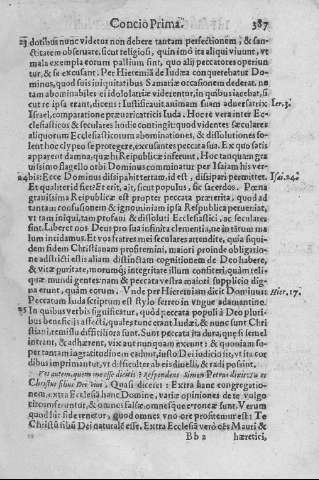 Concio Prima. 387
23 dotibus nunc videtur non debere tantam perfectionem, & san-
ctitatem observare, sicut religiosi, quinimò ita aliqui vivunt, vt
mala exempla eorum pallium sint, quo alij peccatores operiun
tur, & se excusant. Per Hieremiã de Iudæa conquerebatur Do-
minus, quod suis iniquitatibus Samariæ occasionem dederat, ne
tam abominabiles ei idololatriæ viderentur, in quibus iacebat, si-
cut re ipsa erant, dicens: Iustificavit animam suam adversatrix Ier.3.
Israel, comparatione prævaricatricis Iuda. Hoc re vera inter Ec-
clesiasticos & seculares hodie contingit; quod videntes sæculares
aliquorum Ecclesiasticorum abominationes, & dissolutiones so-
lent hoc clypeo se protegere, excusantes peccata sua. Ex quo satis
apparent damna, quæ hi Reipublicæ inferunt. Hoc tanquam gra
uissimo flagello nobis Dominus comminatur per Isaiam his ver-
24 bis: Ecce Dominus dissipabit terram, id est, dissipari permittet. Isai.24.
Et qualiter id fiet? Et erit, ait, sicut populus, sic sacerdos. Pœna
gravissima Reipublicæ est propter peccata præterita, quod ad
tantam confusionem & ignominiam ipsa Respublica perueniat,
vt tam iniqui, tam profani & dissoluti Ecclesiastici, ac seculares
sint. Liberet nos Deus pro sua infinita clementia, ne in tãtum ma
lum incidamus. Et vos fratres mei seculares attendite, quia siqui-
dem fidem Christianam profitemini, maiori proinde obligatio-
ne adstricti estis aliam distinctam cognitionem de Deo habere,
& vitæ puritate, morumq; integritate illum confiteri, quàm reli-
quæ mundi gentes: nam & peccata vestra maiori supplicio dig-
na erunt, quàm eorum. Vnde per Hieremiam dicit Dominus: Hier.17.
Peccatum Iuda scriptum est stylo ferreo in vngue adamantino.
25 In quibus verbis significatur, quòd peccata populi à Deo pluri-
bus beneficijs affecti, quales tunc erant Iudæi, & nunc sunt Chri
stiani, remissu difficiliora sunt. Sunt peccata ista dura, quę si semel
intrent, & adhæreant, vix aut nunquam exeunt: & quoniam so-
pertantam ingratitudinem cadunt, iusto Dei iudicio fit, vt ita cor
dibus imprimantur, vt difficulter abeis divelli, & radi possint.
Vos autem, quem me esse dicitis? Respondens Simon Petrus dixit: Tu es
Christus filius Dei vivi. Quasi diceret: Extra hanc congregatio-
nem, extra Ecclesiã hanc Domine, variæ opiniones de te vulgo
circumferuntur, & omnes falsæ, omnesque erroneæ sunt. Verum
quod sit fide tenetur, quod omnes vno ore profitemur est: Te
Christũ filiũ Dei naturalẽ esse. Extra Ecclesiã verò oẽs Mauri &
Bb 2 hæretici,